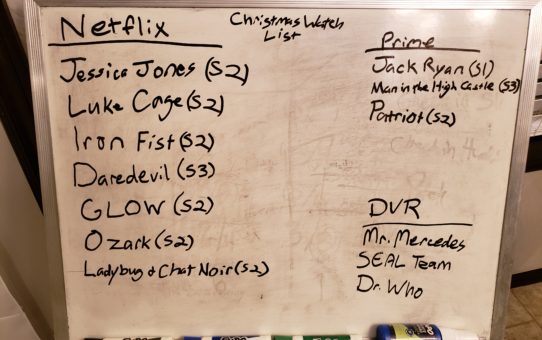 Netflix
Jessica Jones (S2)
Luke Cage (S2)
Iron Fist (S2)
Daredevil (S3)
GLOW (S2)
Ozark (S2)
Ladybug & Chat Noir (S2)
Christmas Watch
List
Prime
Jack Ryan (S1)
Man in the High Castle (S3)
Patriot (S2)
DVR
Mr. Mercedes
SEAL Team
Dr. Who